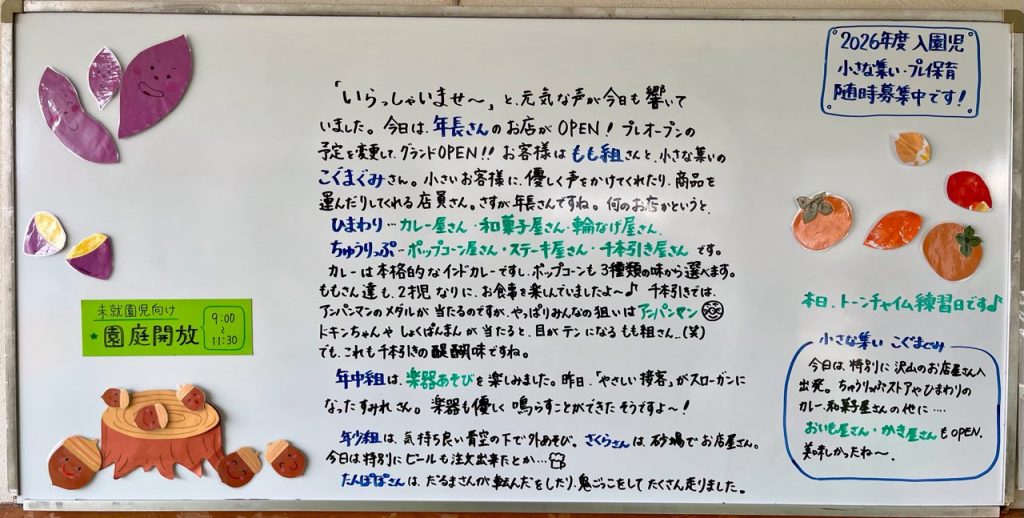 2026年度 入園児
小さな集い・プレ保育
随時募集中です!
「いらっしゃいませ〜」と、元気な声が今日も響いて
いました。今日は、年長さんのお店がOPEN! プレオープンの
予定を変更して、グランドOPEN!! お客様はもも組さんと、小さな集いの
こぐまぐみさん。小さいお客様に、優しく声をかけてくれたり、商品を
運んだりしてくれる店員さん。さすが年長さんですね。何のお店かというと、
ひまわり…カレー屋さん・和菓子屋さん・輪なげ屋さん、
ちゅうりっぷ…ポップコーン屋さん・ステーキ屋さん・千本引き屋さん です。
カレーは本格的なインドカレーですし、ポップコーンも3種類の味から選べます。
ももさん達も、2才児なりに、お食事を楽しんでいましたよ〜♪ 千本引きでは、
アンパンマンのメダルが当たるのですが、やっぱりみんなの狙いはアンパンマン
ドキンちゃんやしょくぱんまんが当たると、目がテンになるもも組さん…(笑)
でも、これも千本引きの醍醐味ですね。
年中組は、楽器あそびを楽しみました。昨日、「やさしい接客」がスローガンに
なったすみれさん。楽器も優しく鳴らすことができたそうですよ〜!
年少組は、気持ち良い青空の下で外あそび。さくらさんは砂場でお店屋さん。
今日は特別にビールも注文出来たとか…
たんぽぽさんは、だるまさんが転んだをしたり、鬼ごっこをしてたくさん走りました。
未就園児向け
★園庭開放
9:00
〜
11:30
本日、トーンチャイム練習日です♪
小さな集い こぐまぐみ
今日は、特別に沢山のお店屋さんへ
出発。ちゅうりっぷストアやひまわりの
カレー、和菓子屋さんの他に…
おいも屋さん・かき屋さんもOPEN。
美味しかったね〜。